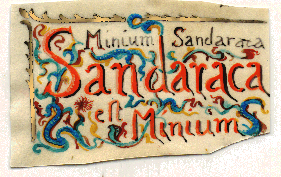 Minium Sandaraca
Sandaraca
est
Minium